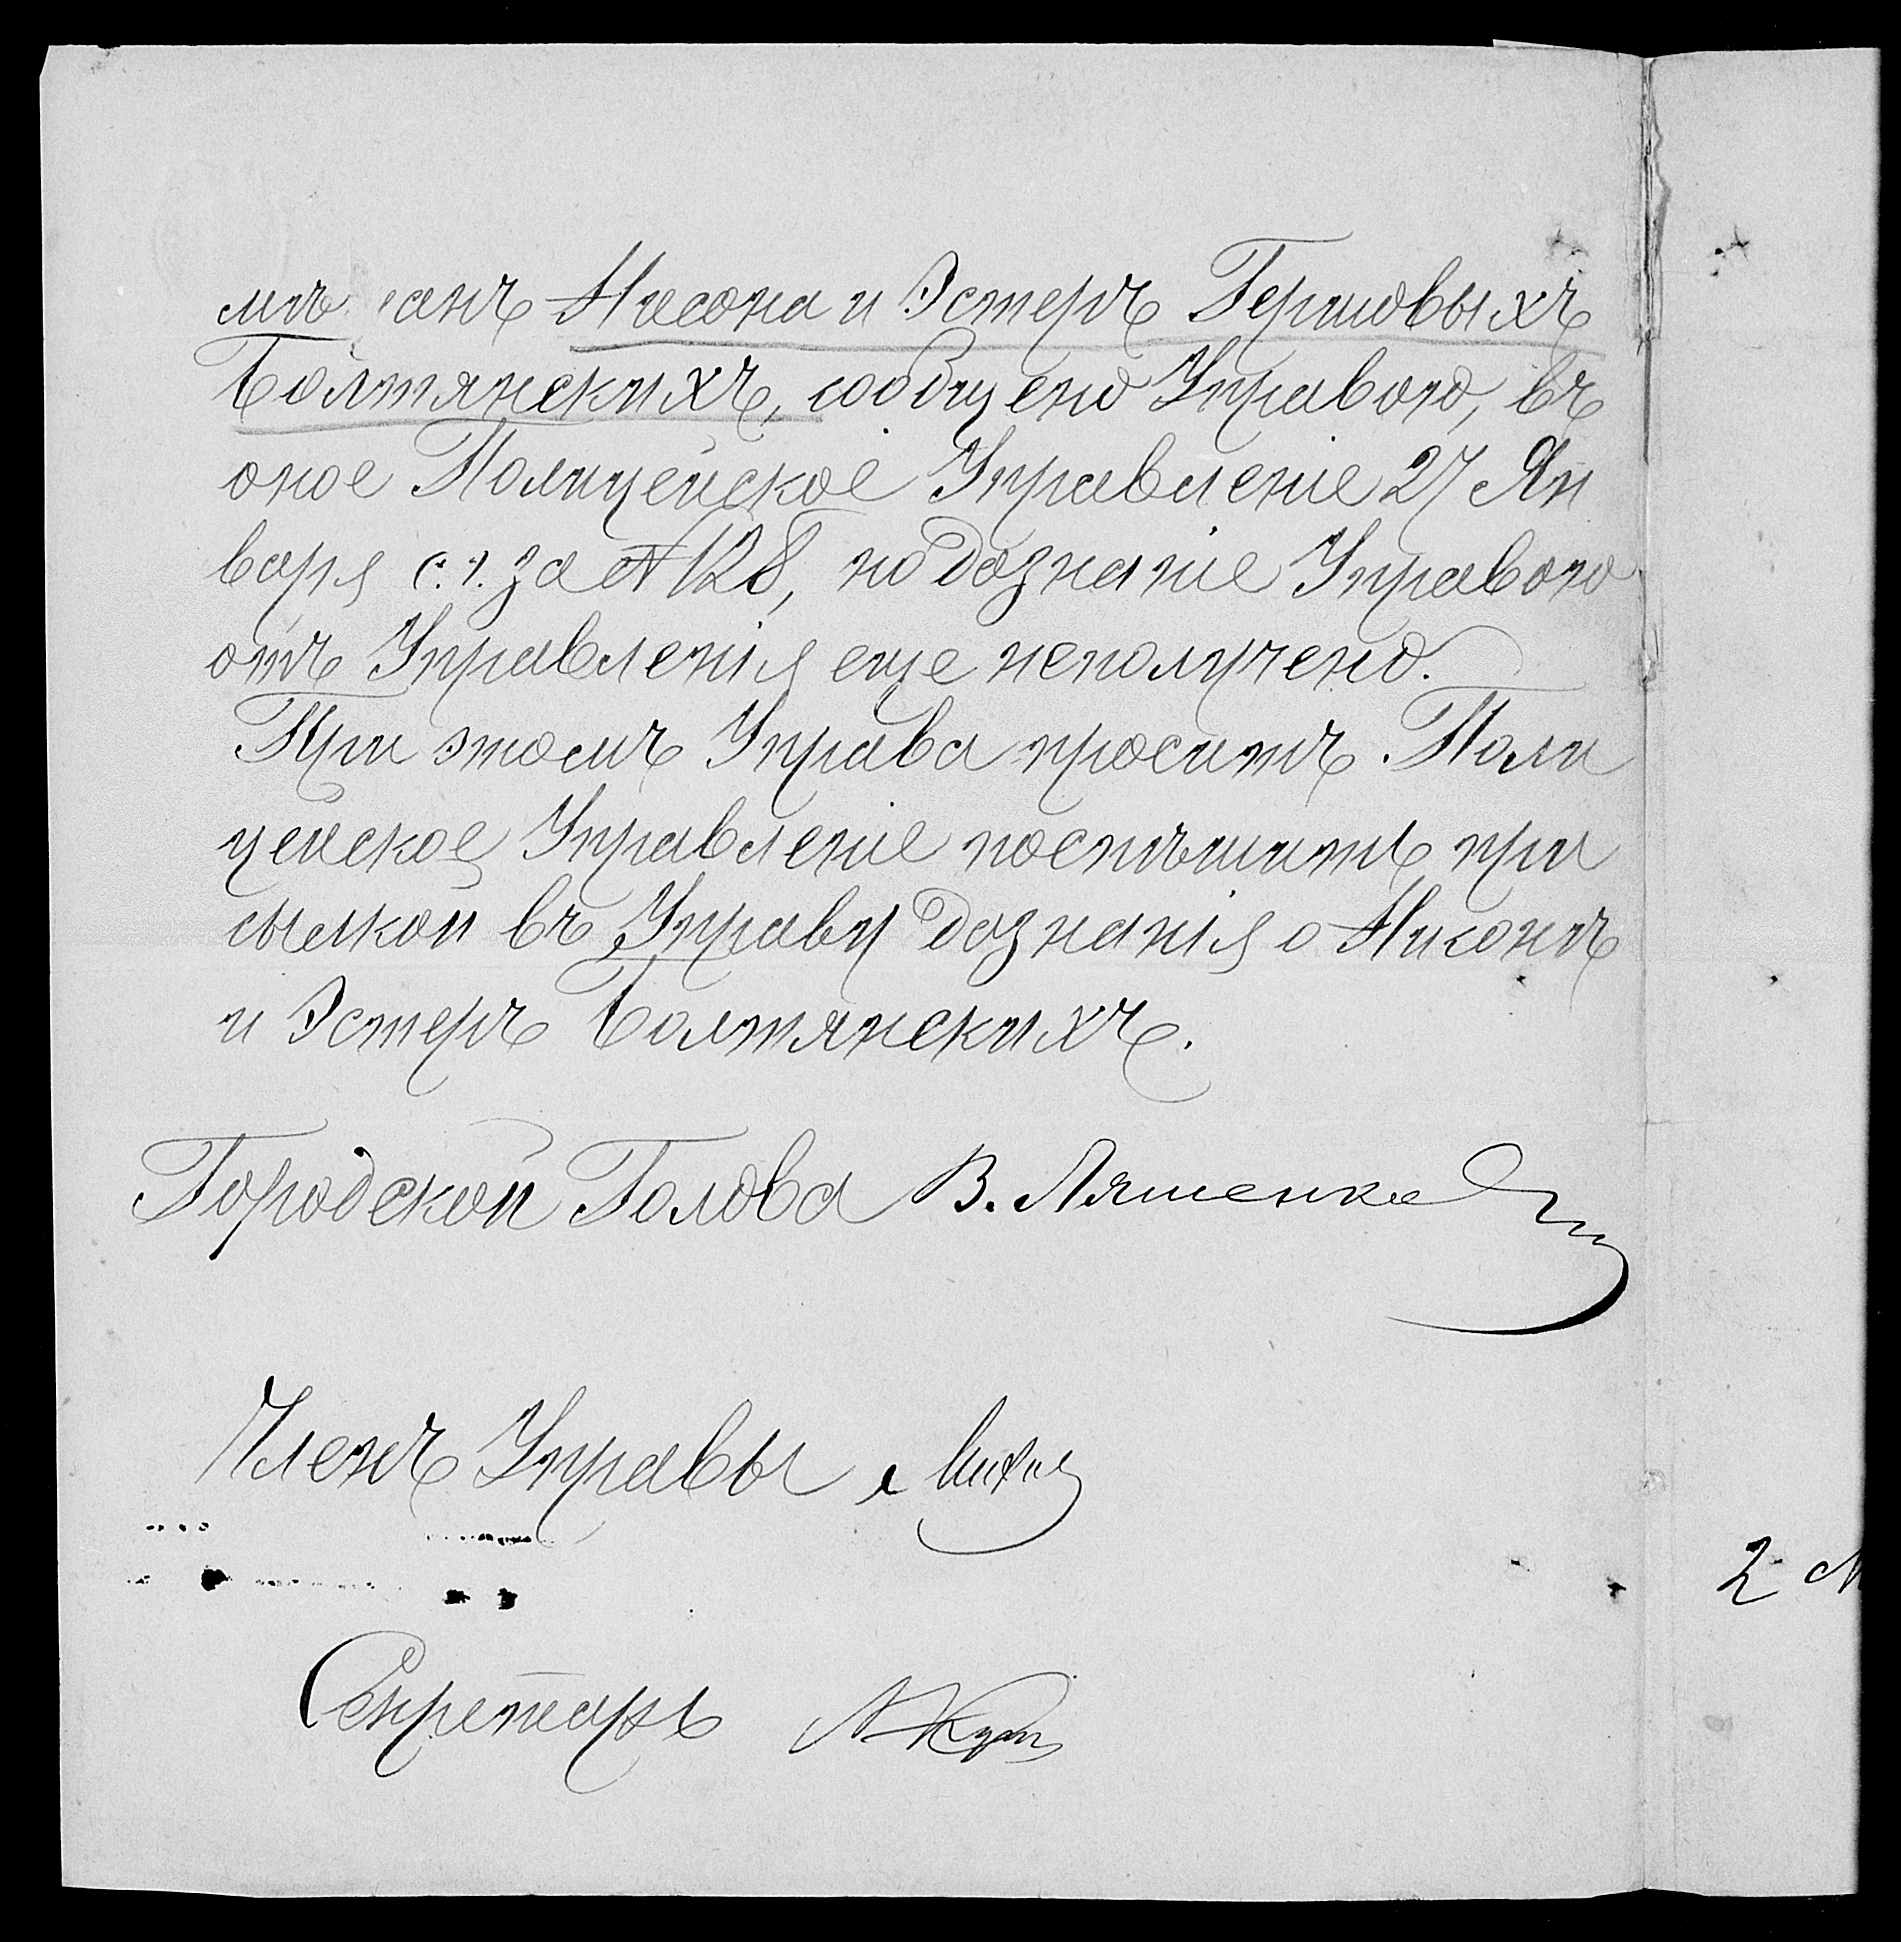 мѣщанъ Нисона и Эстеръ Гершовыхъ
Болтянскихъ, сообщено Управою, въ
оное Полицейское Управленіе 27 Ян
варя с. г. за № 128, но дознаніе Управою
отъ Управленія еще неполучено.
При этомъ Управа проситъ Поли
цейское Управленіе поспѣшить при
сылкой въ Управу дознанія о Нисонѣ
и Эстеръ Болтянскихъ.
Городской Голова В. Ляшенко
Членъ Управы
Секретарь
2